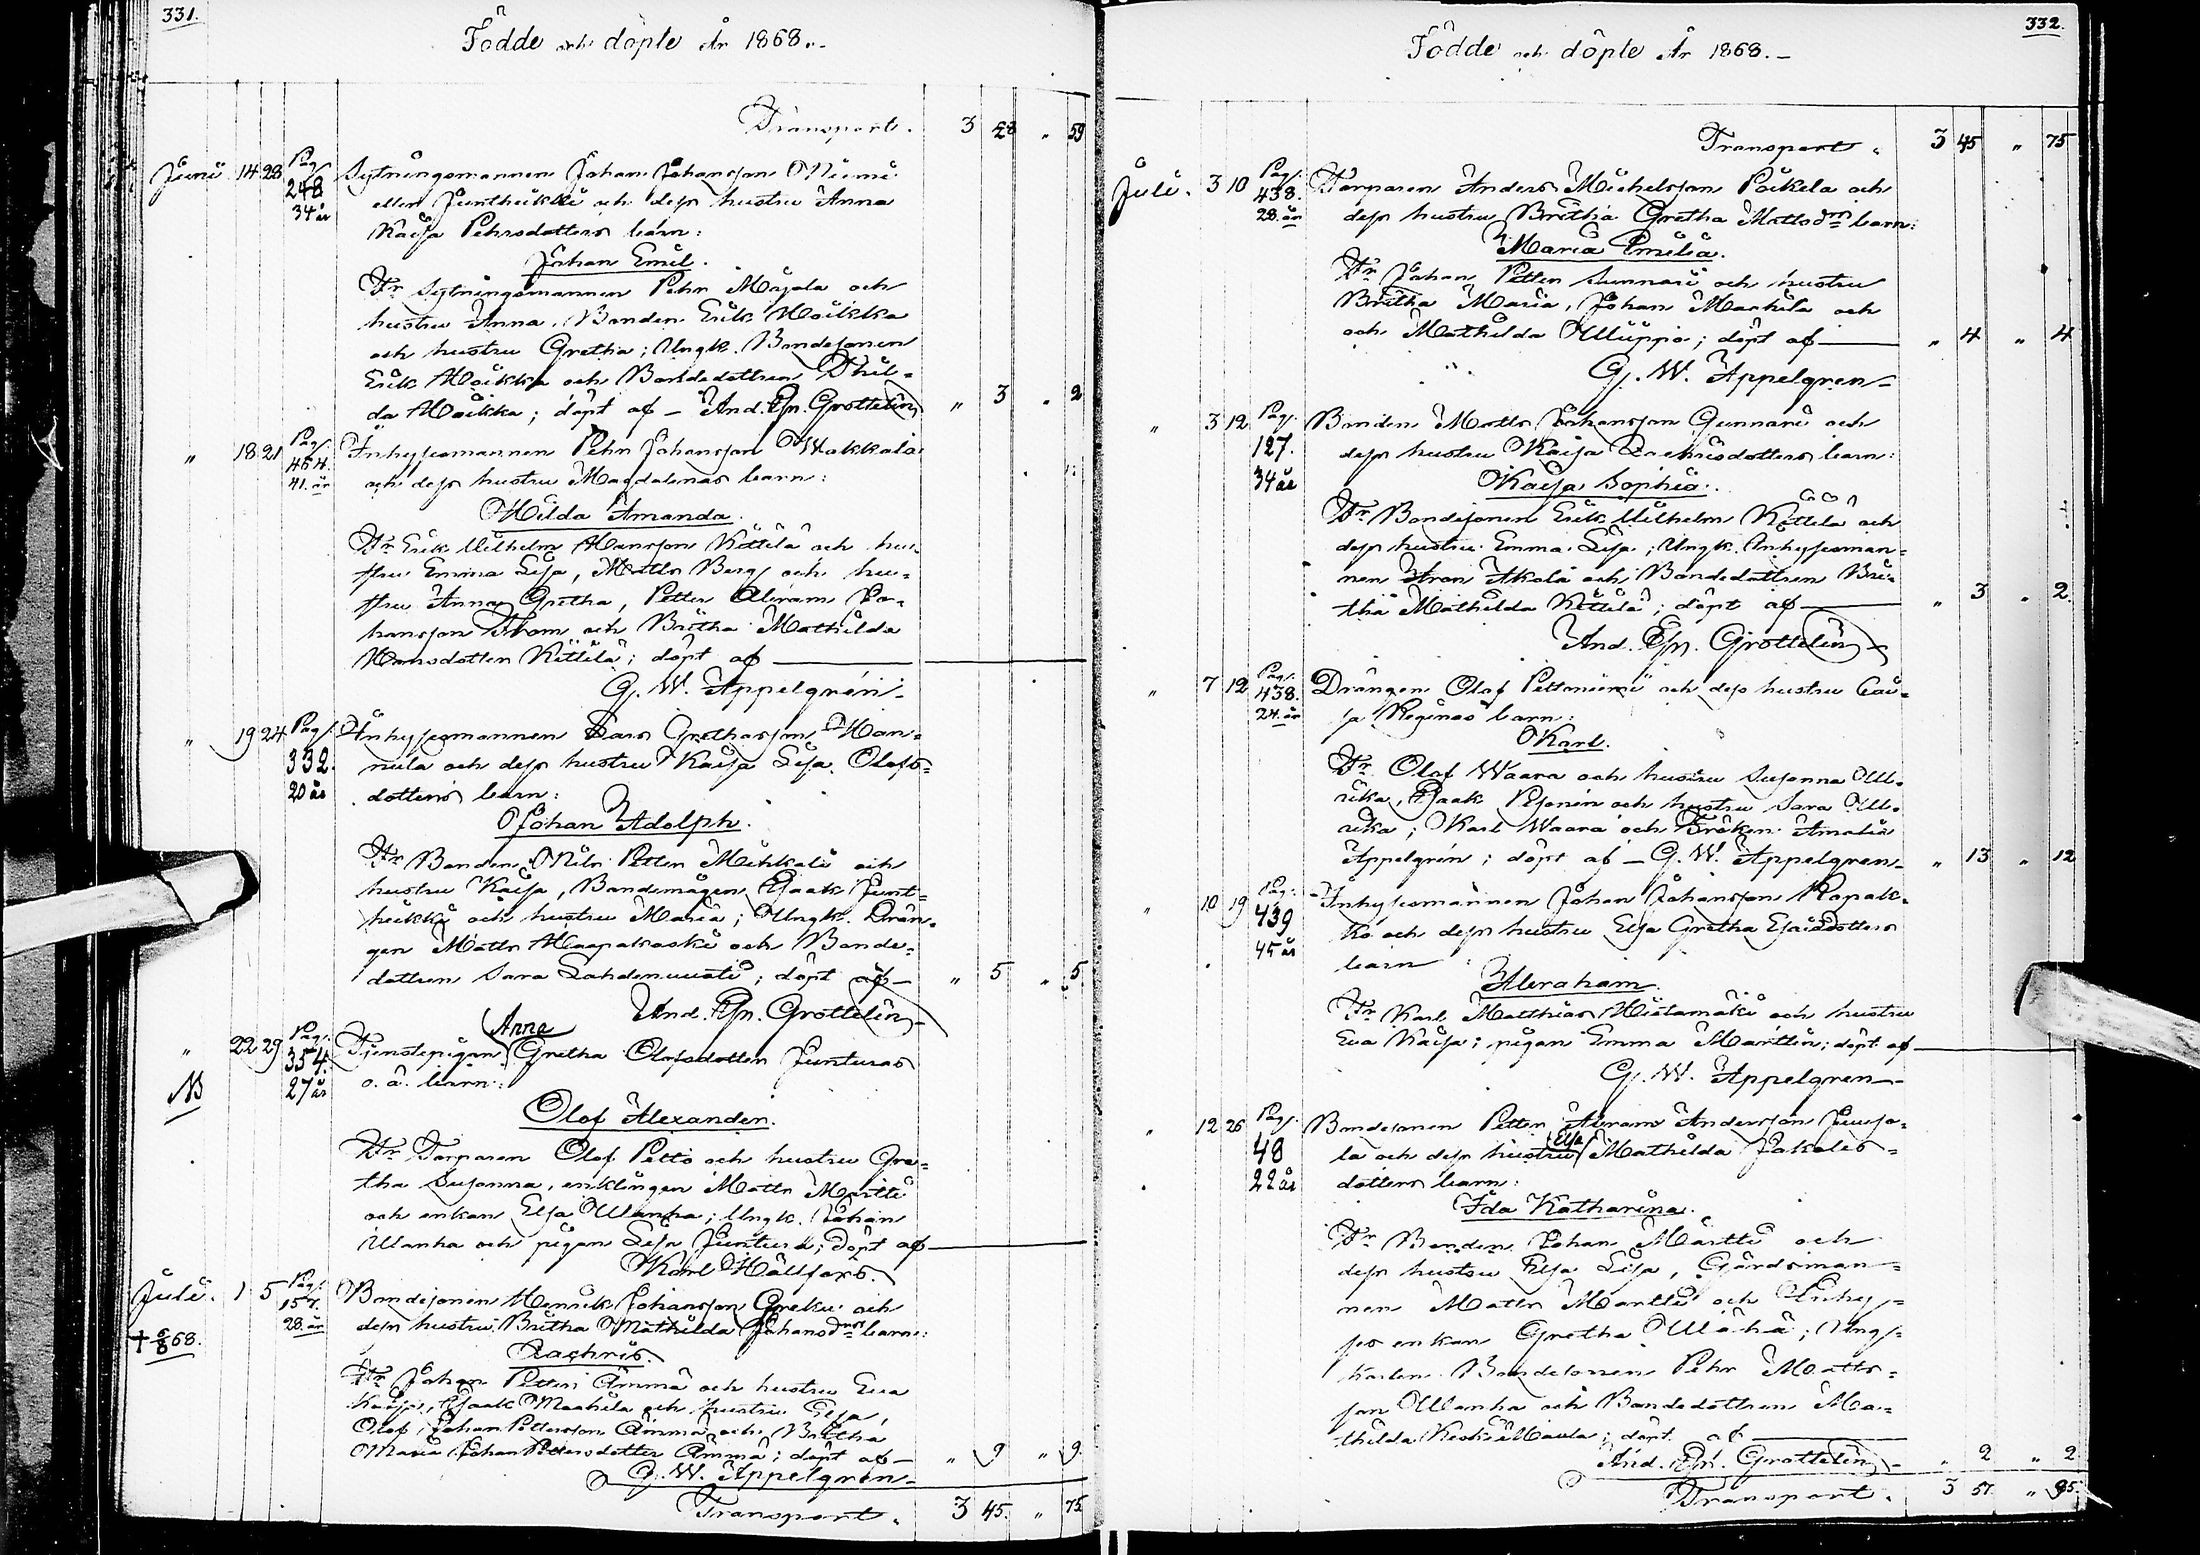 331.
Födde och döpte År 1868.
Transport. 3 28 " 59
Juni 14 28 Pag. 248 34 år
Sytningsmannen Johan Johansson Niemi
eller Juntheikki och dess hustru Anna
Kaisa Pehrsdotters barn:
Johan Emil.
Fr Sytningsmannen Pehr Määla och
hustru Anna, Bonden Erik Moikka
och hustru Gretha; Ungk. Bondesonen
Erik Moikka och Bondedottren Thil-
da Moikka; döpt af – And. Gn. Grottelin " 3 " 2
" 18 21 Pag. 464. 41. år
Inhysesmannen Pehr Johansson Wakkala
och dess hustru Magdalenas barn:
Hilda Amanda.
Fr Erik Wilhelm Hansson Kettilä och hu-
stru Emma Lisa, Matts Berg och hu-
stru Anna Gretha, Petter Abram Jo-
hansson Thom och Britha Mathilda
Hansdotter Kettilä; döpt af —
G. W. Appelgrén
" 19 24 Pag. 332. 20 år
Inhysesmannen Lars Grethasson Han-
nula och dess hustru Kaisa Lisa Olofs-
dotters barn:
Johan Adolph.
Fr Bonden Nils Petter Mikkali och
hustru Kaisa, Bondemågen Isaak Junt-
heikki och hustru Maria; Ungk. Drän-
gen Matts Haapakoski och Bonde-
dottren Sara Lahdenvuati; döpt af – " 5 " 5
And. Gn. Grottelin
" 22 29 Pag. 354. 27 år
NB
Anna
Tjenstepigan Gretha Olofsdotter Junturas
o. ä. barn:
Olof Alexander.
Fr Torparen Olof Petto och hustru Gre-
tha Susanna, enklingen Matts Martti
och enkan Elsa Wanha; Ungk. Johan
Wanha och pigan Lisa Juntura; döpt af —
Karl Hällfors.
Juli. 1 5 Pag. 157. 28. år
† 6/8 68.
Bondesonen Henrik Johansson Greku och
dess hustru Britha Mathilda Johansdrs barn:
Zachris.
Fr Johan Petter Ämmä och hustru Eva
Kaisa, Isaak Machila och hustru Elsa,
Olof Johan Pettersson Ämmä och Britha
Maria Johan Pettersdotter Ämmä; döpt af – " 9 " 9.
G. W. Appelgren
Transport. 3 45. " 75
332.
Födde och döpte År 1868.
Transport. 3 45 " 75
Juli. 3 10 Pag. 438. 28. år
Torparen Anders Michelsson Poikela och
dess hustru Britha Gretha Mattsdrs barn:
Maria Emilia.
Fr Johan Petter Sunnari och hustru
Britha Maria, Johan Machila och
och Mathilda Ulluppo; döpt af — " 4 " 4
G. W. Appelgren
" 3 12 Pag. 127. 34 år
Bonden Matts Johansson Gunnari och
dess hustru Kaisa Zachrisdotters barn:
Kaisa Sophia.
Fr Bondesonen Erik Wilhelm Kettilä och
dess hustru Emma Lisa; Ungk. Inhysesman-
nen Aron Akola och Bondedottren Bri-
tha Mathilda Kettilä; döpt af — " 3 " 2.
And. Gn. Grottelin
" 7 12 Pag. 438. 24. år
Drängen Olof Pettoniemi och dess hustru Cai-
sa Reginas barn:
Karl.
Fr Olof Waara och hustru Susanna Ul-
rika, Isaak Pesonen och hustru Sara Ul-
rika; Karl Waara och Fröken Amalia
Appelgrén; döpt af – G. W. Appelgren " 13 " 12
" 10 19 Pag. 439 45 år
Inhysesmannen Johan Johansson Ropak-
ko och dess hustru Elsa Gretha Esaiædotters
barn
Abraham.
Fr Karl Matthias Hietamäki och hustru
Eva Kaisa; pigan Emma Marttin; döpt af —
G. W. Appelgren
" 12 26 Pag. 48 22 år
Bondesonen Petter Abram Andersson Juuso-
Elsa
la och dess hustru Mathilda Jakobs-
dotters barn:
Ida Katharina.
Fr Bonden Johan Martti och
dess hustru Elsa Lisa, Gårdsman-
nen Matts Martti och Inhy-
ses enkan Gretha Wähä; Ung-
karlen Bondesonen Pehr Matts-
son Wanha och Bondedottren Ma-
thilda; döpt af —
And. Gn. Grottelin " 2 " 2
Transport. 3 57. " 95.